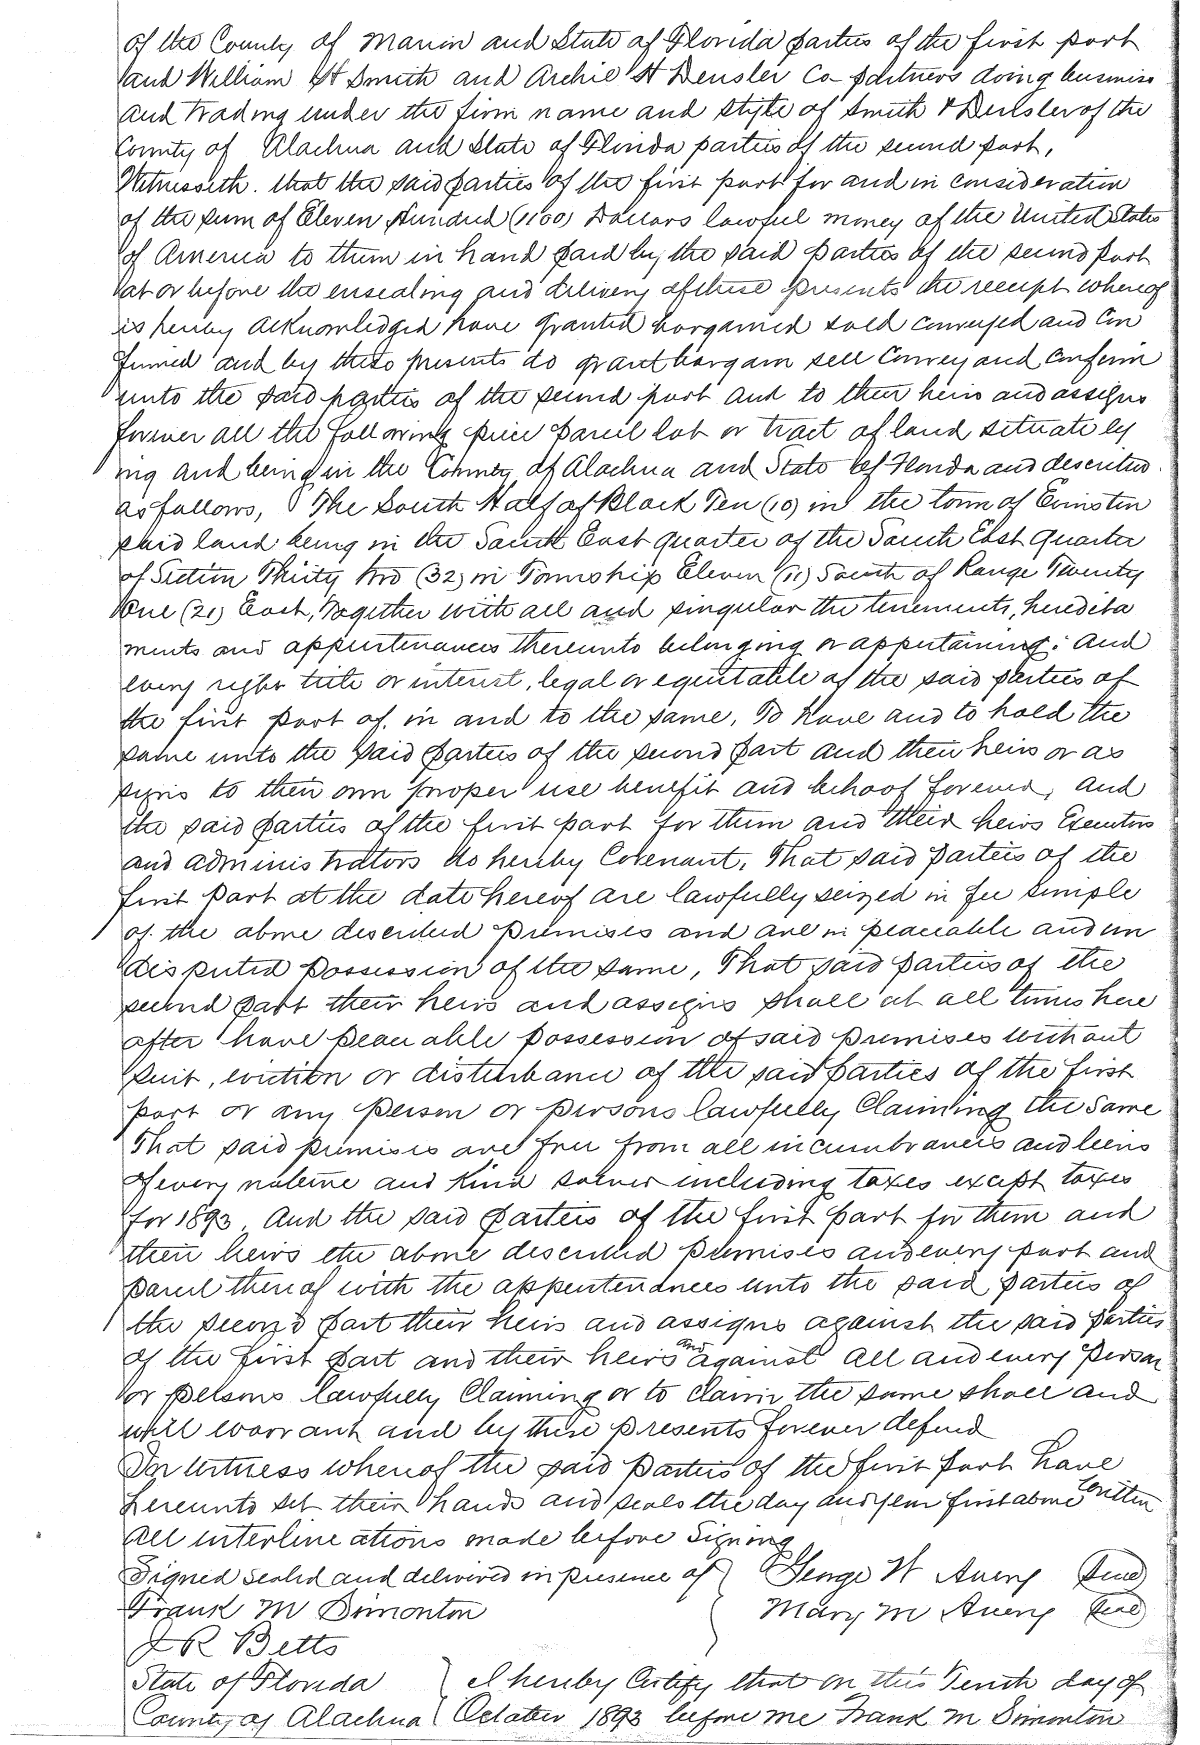 of the County of Marion and State of Florida parties of the first part
and William H Smith and Archie H Deusler Co partners doing business
and trading under the firm name and style of Smith & Deusler of the
County of Alachua and State of Florida parties of the second part,
Witnesseth. that the said parties of the first part for and in consideration
of the sum of Eleven Hundred (1100) Dollars lawful money of the United States
of America to them in hand paid by the said parties of the second part
at or before the ensealing and delivery of these presents the receipt whereof
is hereby acknowledged have granted bargained sold conveyed and con
firmed and by these presents do grant bargain sell Convey and Confirm
unto the said parties of the second part and to their heirs and assigns
forever all the following piece parcel lot or tract of land situate ly
ing and being in the County of Alachua and State of Florida and described
as follows, The South Half of Block Ten (10) in the town of Evinston
said land being in the South East quarter of the South East Quarter
of Section Thirty two (32) in Township Eleven (11) South of Range Twenty
One (21) East, Together with all and singular the tenements, heredita
ments and appurtenances thereunto belonging or appertaining: and
every right title or interest, legal or equitable of the said parties of
the first part of, in and to the same, To have and to hold the
same unto the said parties of the second part and their heirs or as
signs to their own proper use benefit and behoof forever, and
the said parties of the first part for them and their heirs Executors
and administrators do hereby Covenant, That said parties of the
first part at the date hereof are lawfully seized in fee simple
of the above described premises and are in peaceable and un
disputed possession of the same, That said parties of the
second part their heirs and assigns shall at all times here
after have peaceable possession of said premises without
suit, eviction or disturbance of the said parties of the first
part or any person or persons lawfully Claiming the same
That said premises are free from all incumbrances and liens
of every nature and Kind soever including taxes except taxes
for 1893, And the said parties of the first part for them and
their heirs the above described premises and every part and
parcel thereof with the appurtenances unto the said parties of
the second part their heirs and assigns against the said parties
of the first part and their heirs and against all and every person
or persons lawfully Claiming or to claim the same shall and
will warrant and by these presents forever defend
In witness whereof the said parties of the first part have
hereunto set their hands and seals the day and year first above written
All interlineations made before signing
Signed sealed and delivered in presence of } George W Avery Seal
Frank M Simonton Mary M Avery Seal
J R Betts
State of Florida } I hereby Certify that on this Tenth day of
County of Alachua } October 1893 before me Frank M Simonton